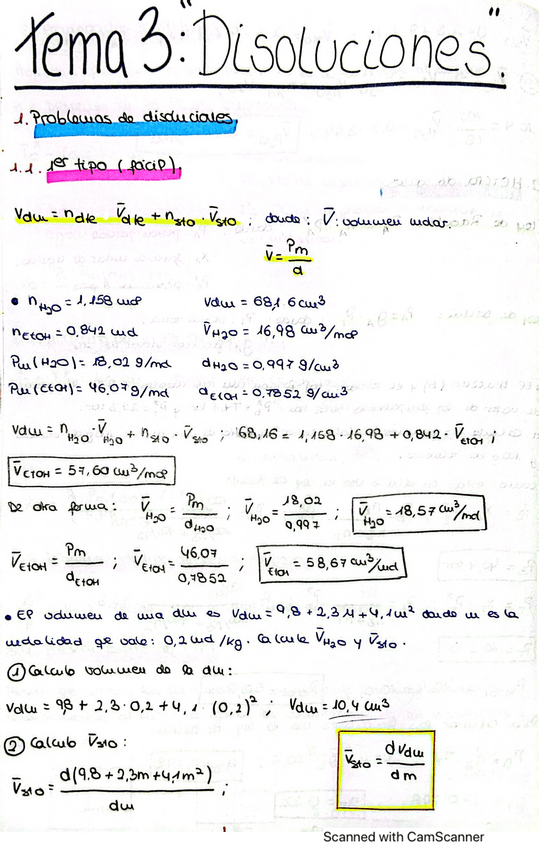 Tema 3: "Disoluciones".
1. Problemas de disoluciones.
1.1. 1er tipo (fácil).
Vdm = ndte V̄dte + nsto · V̄sto ; donde: V̄: volumen molar.
V̄ = Pm / d
• nH2O = 1,158 mol Vdm = 68,16 cm³
nEtOH = 0,842 mol V̄H2O = 16,98 cm³/mol
Pm (H2O) = 18,02 g/mol dH2O = 0,997 g/cm³
Pm (EtOH) = 46,07 g/mol dEtOH = 0,7852 g/cm³
Vdm = nH2O · V̄H2O + nsto · V̄sto ; 68,16 = 1,158 · 16,98 + 0,842 · V̄EtOH ;
V̄EtOH = 57,60 cm³/mol
De otra forma: V̄H2O = Pm / dH2O ; V̄H2O = 18,02 / 0,997 ; V̄H2O = 18,57 cm³/mol
V̄EtOH = Pm / dEtOH ; V̄EtOH = 46,07 / 0,7852 ; V̄EtOH = 58,67 cm³/mol
• El volumen de una dm es Vdm = 9,8 + 2,3m + 4,1m² donde m es la
molalidad qe vale: 0,2 mol/kg. Calcule V̄H2O y V̄sto.
① Calculo volumen de la dm:
Vdm = 9,8 + 2,3 · 0,2 + 4,1 · (0,2)² ; Vdm = 10,4 cm³
② Calculo V̄sto:
V̄sto = d(9,8 + 2,3m + 4,1m²) / dm ; V̄sto = dVdm / dm
Scanned with CamScanner